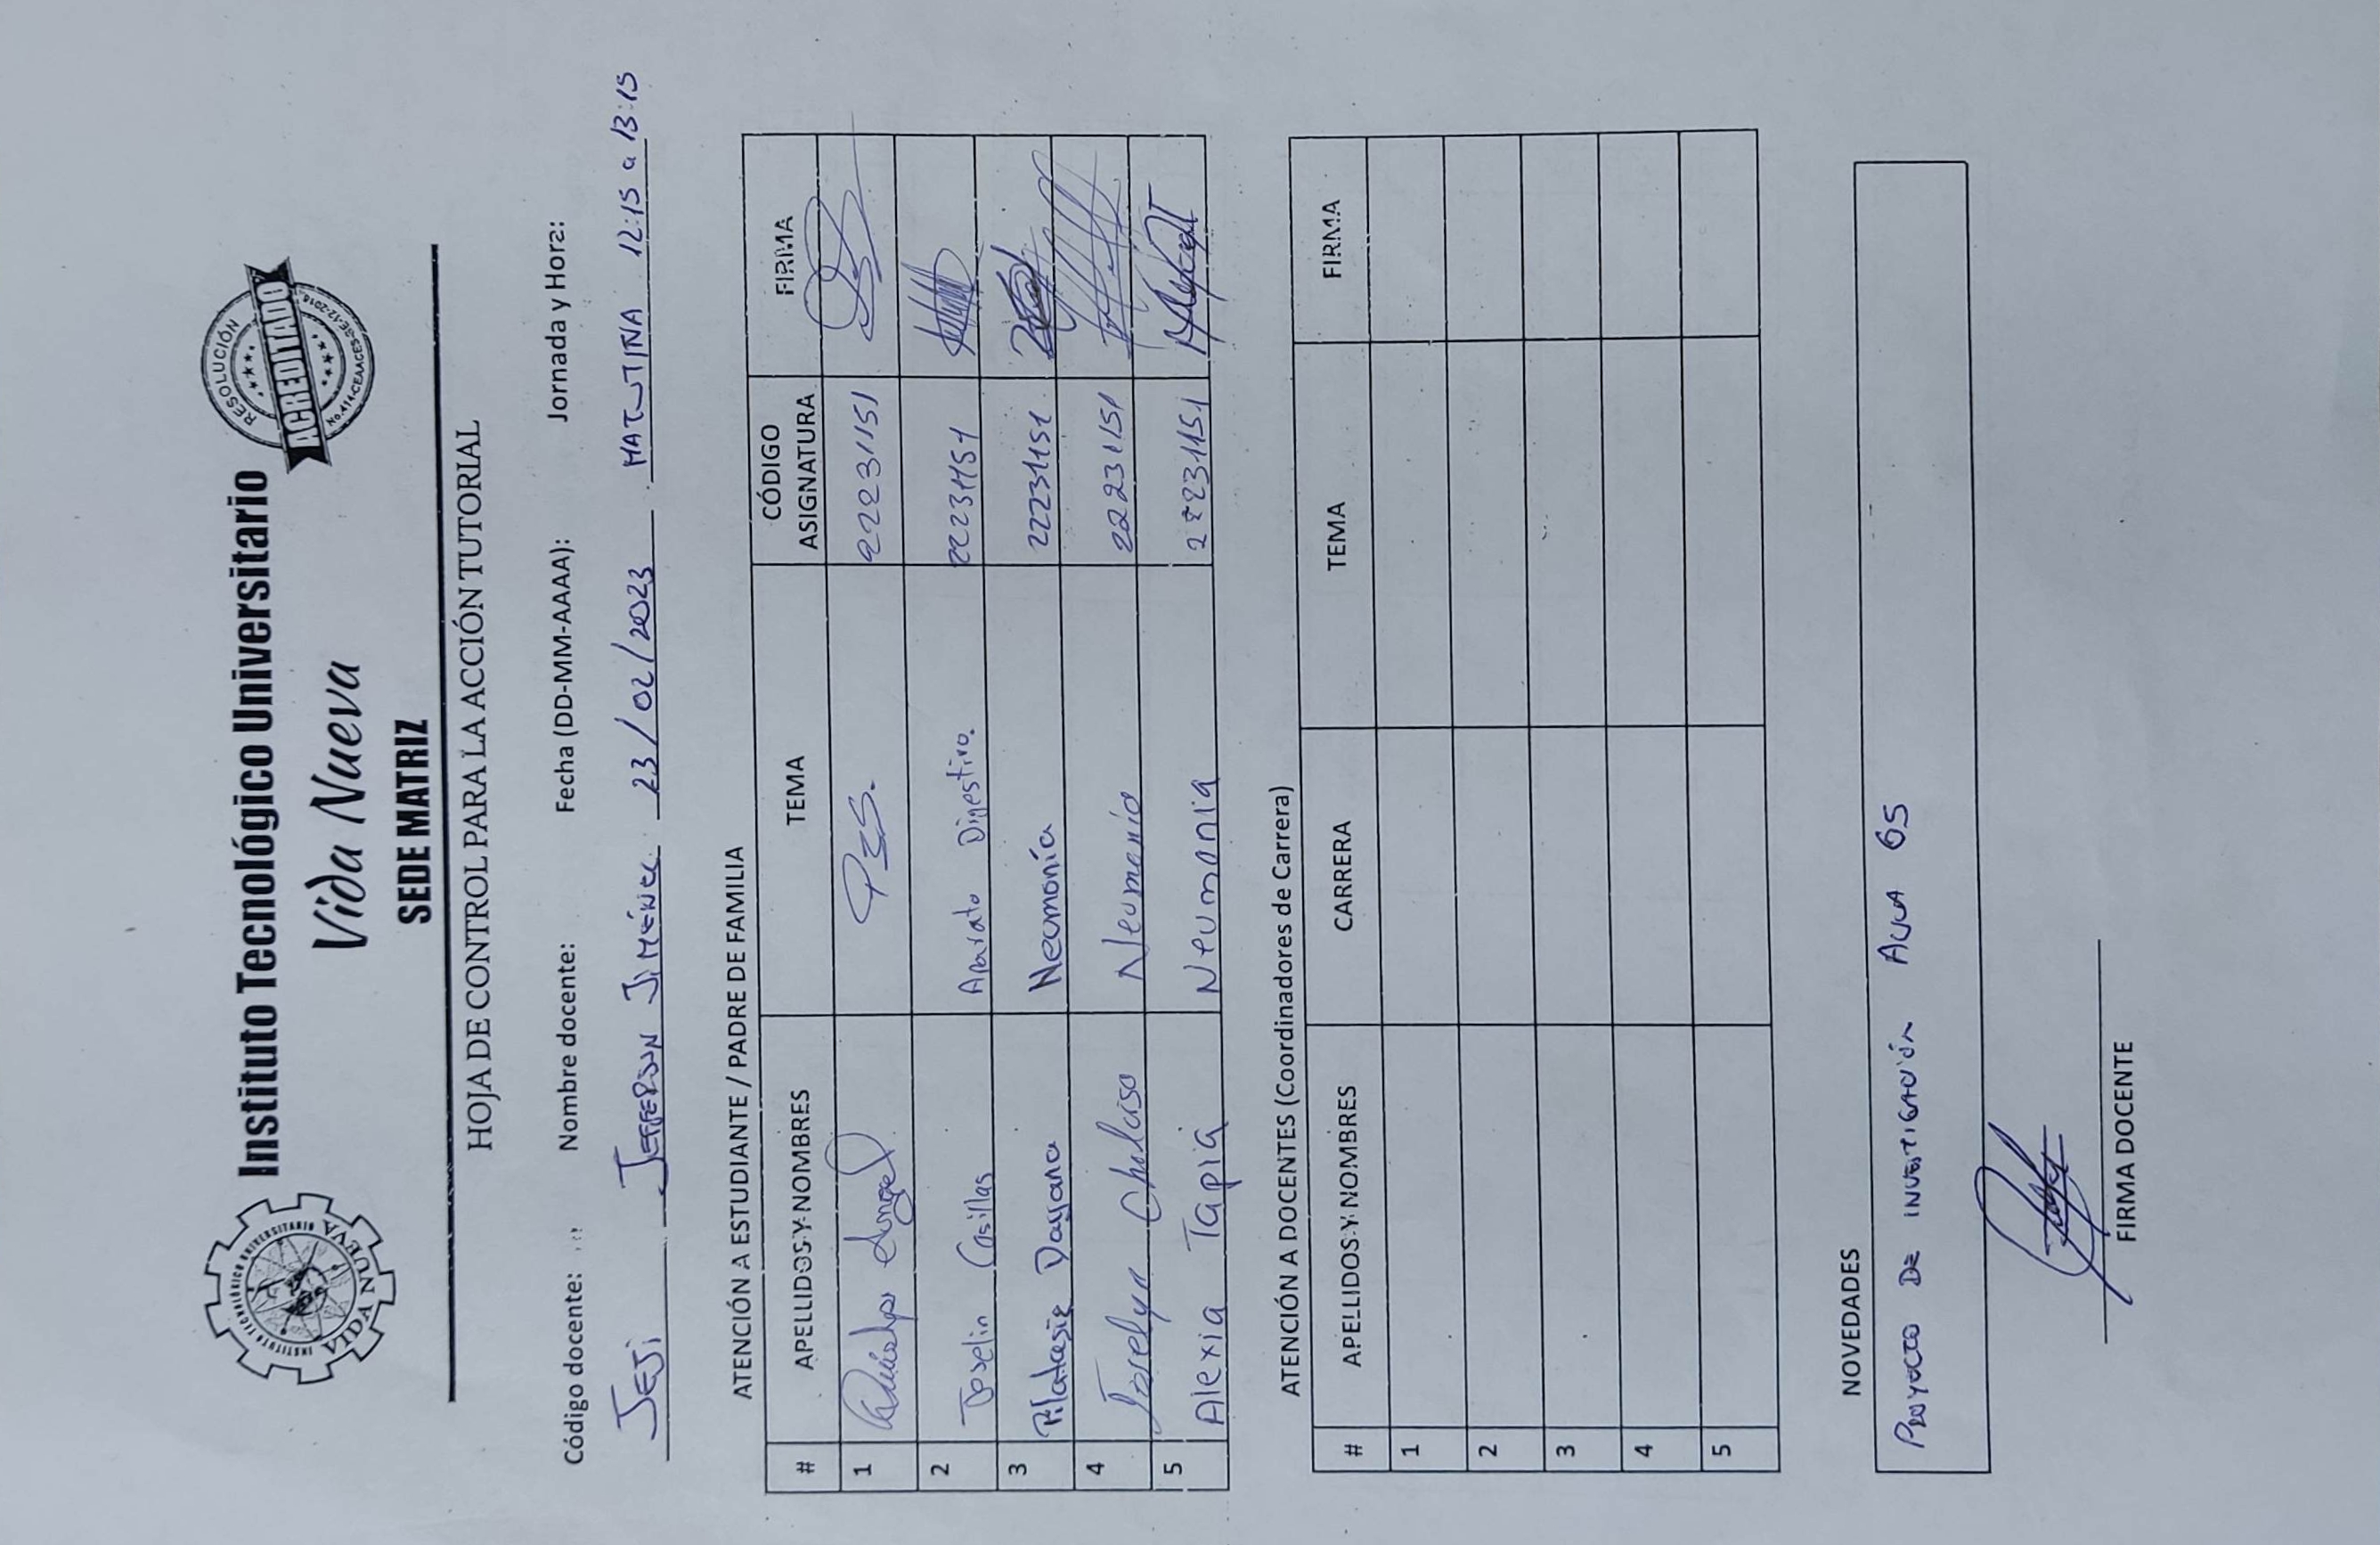 INSTITUTO TECNOLÓGICO UNIVERSITARIO
VIDA NUEVA
Instituto Tecnológico Universitario
Vida Nueva
SEDE MATRIZ
RESOLUCIÓN
ACREDITADO
No.414-CEAACES-SE-12-2016
HOJA DE CONTROL PARA LA ACCIÓN TUTORIAL
Código docente: Nombre docente: Fecha (DD-MM-AAAA): Jornada y Hora:
JEJi JEFFERSON JIMÉNEZ 23/02/2023 MATUTINA 12:15 a 13:15
ATENCIÓN A ESTUDIANTE / PADRE DE FAMILIA
# APELLIDOS Y NOMBRES TEMA CÓDIGO ASIGNATURA FIRMA
1 Angel. 22231151
2 Joselin Casillas Aparato Digestivo. 22231151
3 Pilatasig Dayana Neumonía 22231151
4 Joselyn Neumonía 22231151
5 Alexia Tapia Neumonia 22231151
ATENCIÓN A DOCENTES (Coordinadores de Carrera)
# APELLIDOS Y NOMBRES CARRERA TEMA FIRMA
1
2
3
4
5
NOVEDADES
PROYECTO DE INVESTIGACIÓN AULA 65
FIRMA DOCENTE